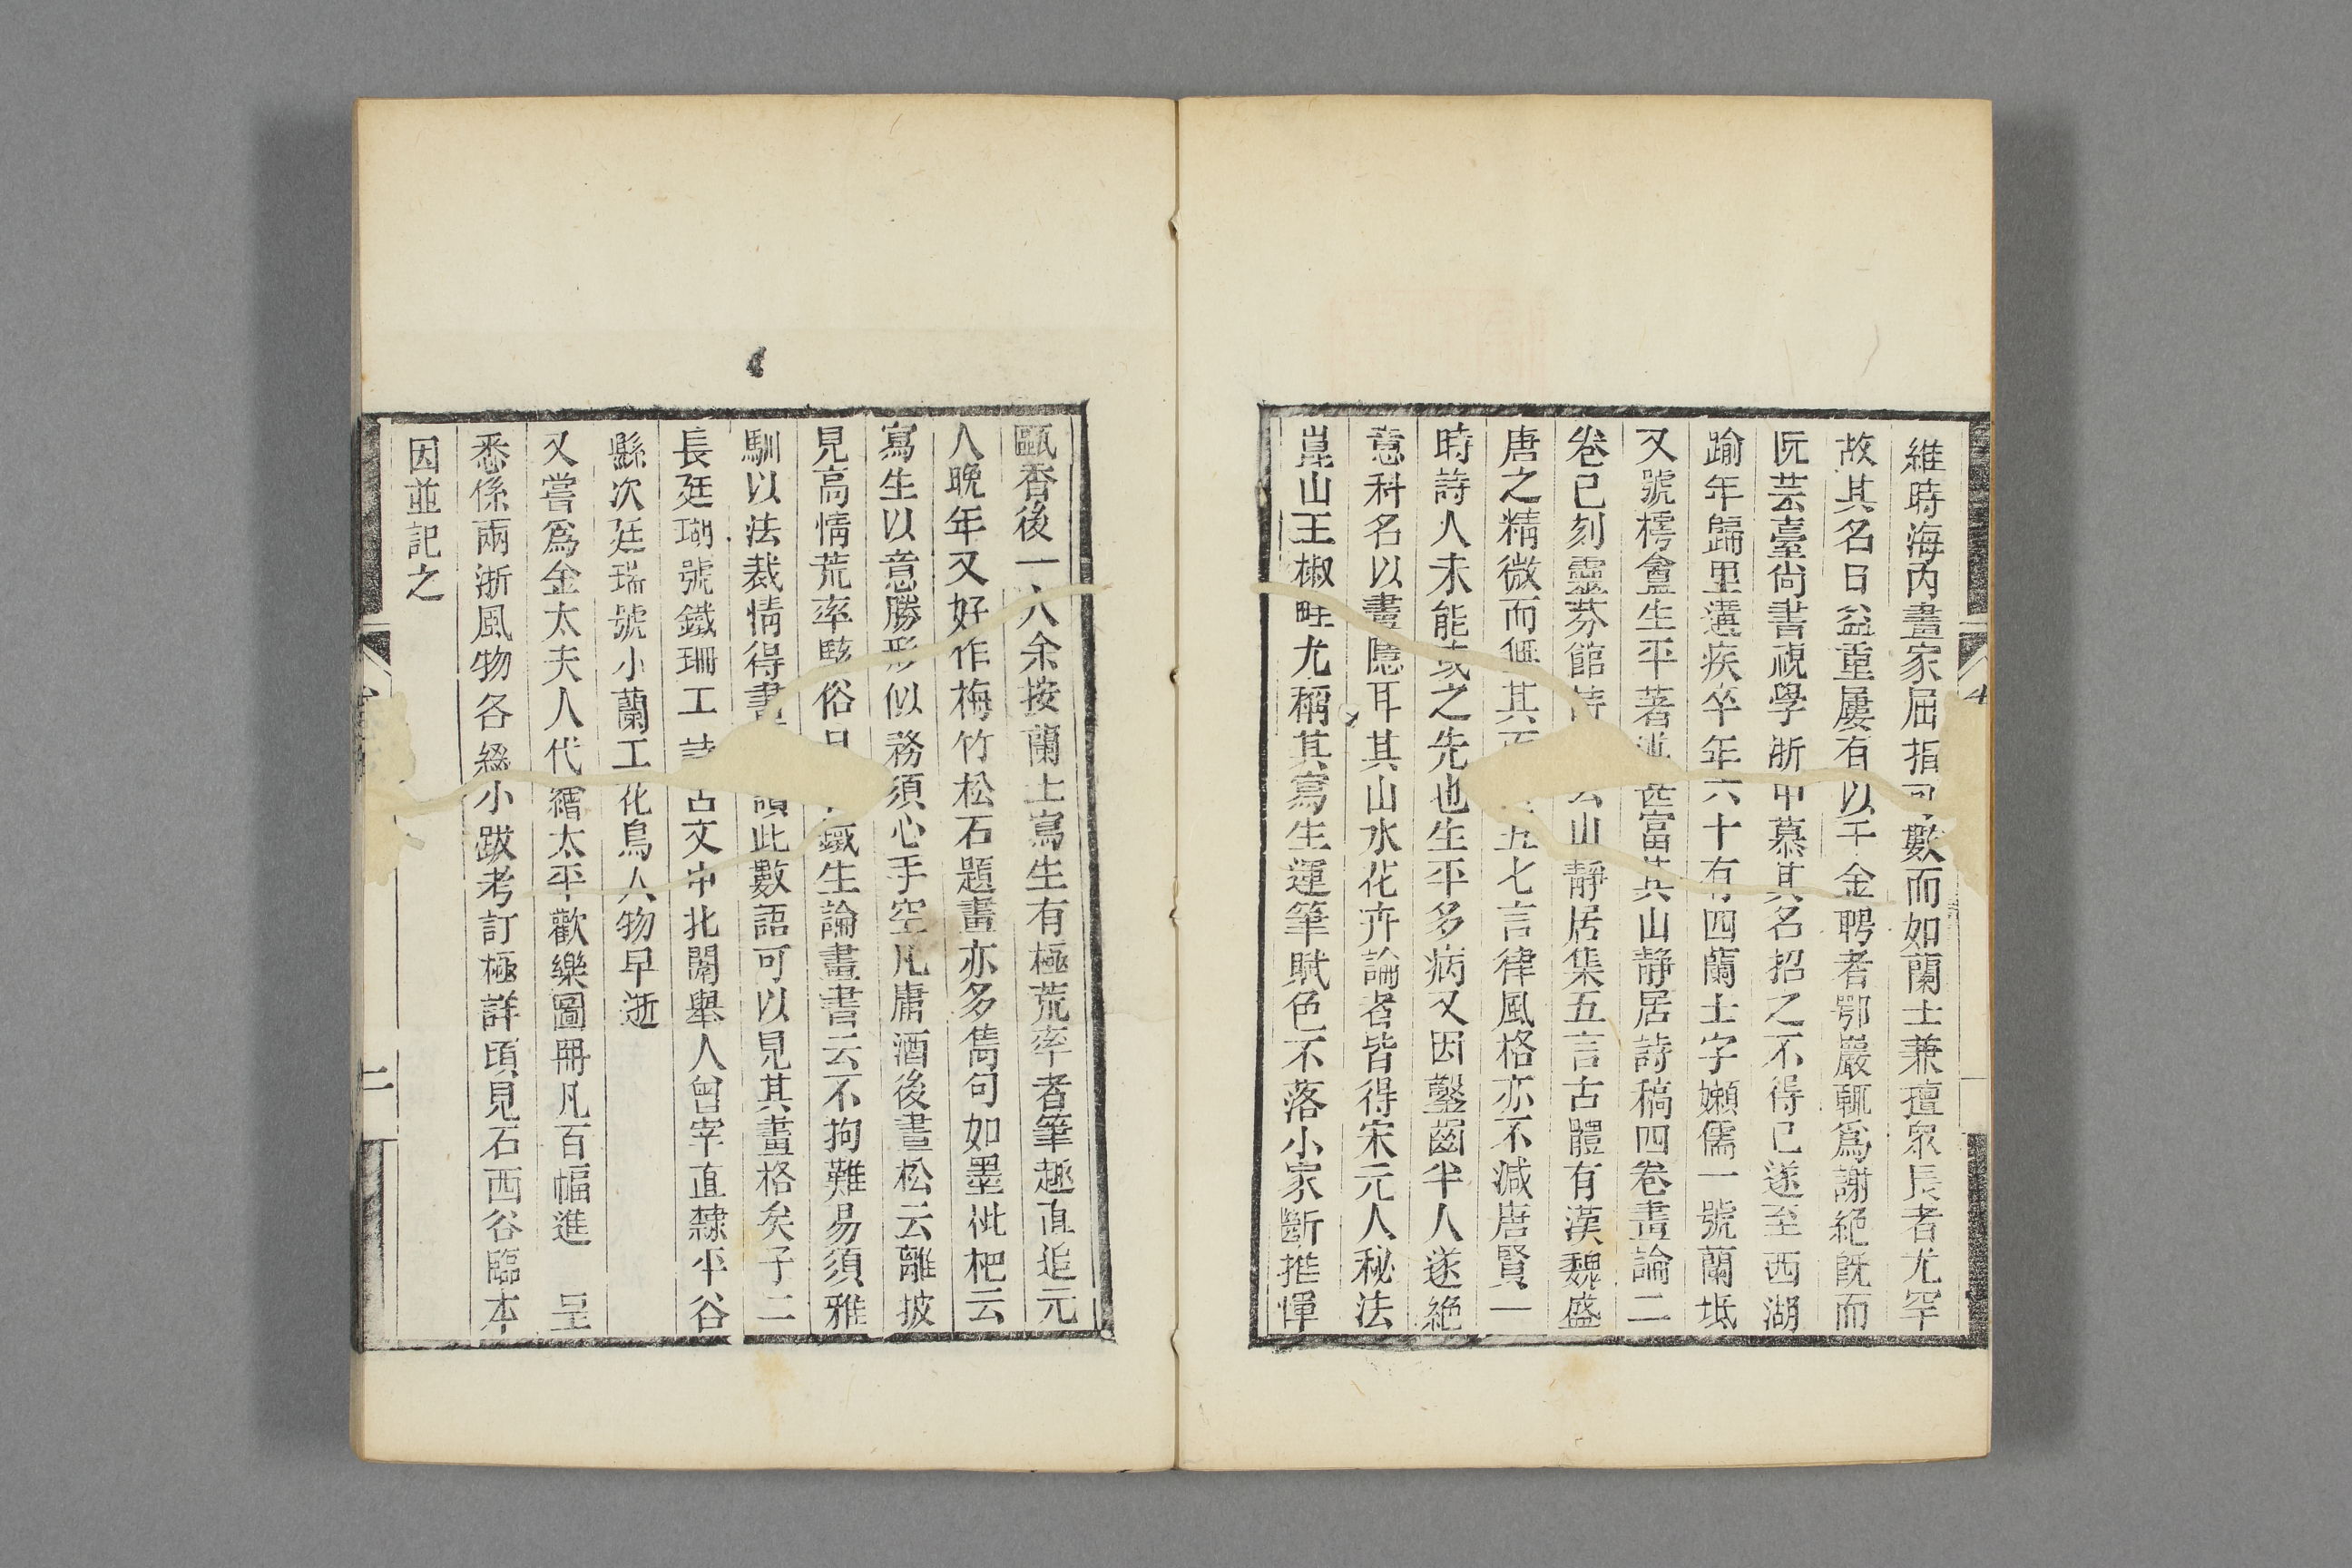 維時海內畫家屈指可數而如蘭士兼擅衆長者尤罕
故其名日益重屢有以千金聘者鄂巖輒爲謝絶旣而
阮芸臺尙書視學浙中慕其名招之不得已遂至西湖
踰年歸里遘疾卒年六十有四蘭士字嬾儒一號蘭坻
又號樗盦生平著述甚富其山靜居詩稿四卷畫論二
卷已刻靈芬館詩話云山靜居集五言古體有漢魏盛
唐之精微而無其面五七言律風格亦不減唐賢一
時詩人未能或之先也生平多病又因鑿齒半人遂絶
意科名以畫隱耳其山水花卉論者皆得宋元人秘法
崑山王椒畦尤稱其寫生運筆賦色不落小家斷推惲
甌香後一人余按蘭士寫生有極荒率者筆趣直追元
人晚年又好作梅竹松石題畫亦多雋句如墨枇杷云
寫生以意勝形似務須心手空凡庸酒後畫松云離披
見高情荒率駭俗目鐵生論畫書云不拘難易須雅
馴以法裁情得畫讀此數語可以見其畫格矣子二
長廷瑚號鐵珊工詩古文中北闈舉人曾宰直隸平谷
縣次廷瑞號小蘭工花鳥人物早逝
又嘗爲金太夫人代繪太平歡樂圖冊凡百幅進 呈
悉係兩浙風物各綴小跋考訂極詳頃見石西谷臨本
因並記之